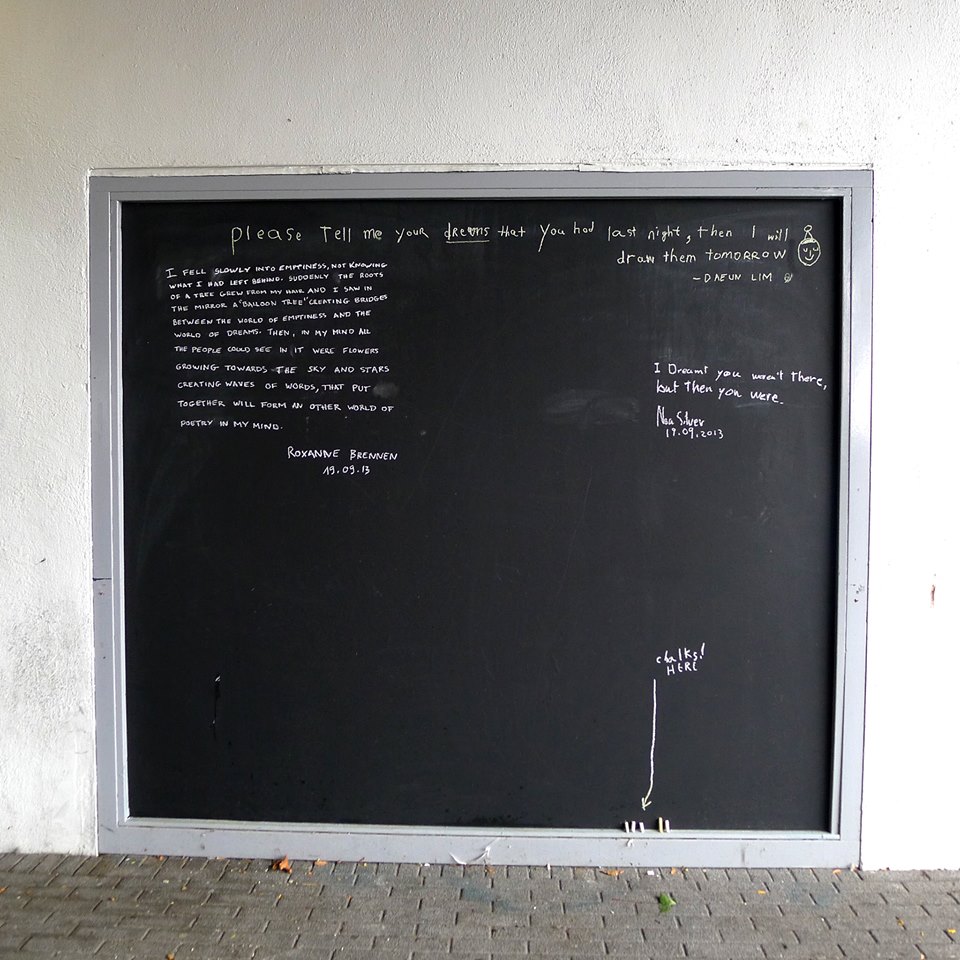 please Tell me your dreams that you had last night, then I will
draw them tomorrow
- DAEUN LIM
I FELL SLOWLY INTO EMPTINESS, NOT KNOWING
WHAT I HAD LEFT BEHIND. SUDDENLY THE ROOTS
OF A TREE GREW FROM MY HAIR AND I SAW IN
THE MIRROR A "BALLOON TREE" CREATING BRIDGES
BETWEEN THE WORLD OF EMPTINESS AND THE
WORLD OF DREAMS. THEN, IN MY MIND ALL
THE PEOPLE COULD SEE IN IT WERE FLOWERS
GROWING TOWARDS THE SKY AND STARS
CREATING WAVES OF WORDS, THAT PUT
TOGETHER WILL FORM AN OTHER WORLD OF
POETRY IN MY MIND.
ROXANNE BRENNEN
19.09.13
I Dreamt you weren't there,
but then you were.
Noa Silver
19.09.2013
chalks!
HERE